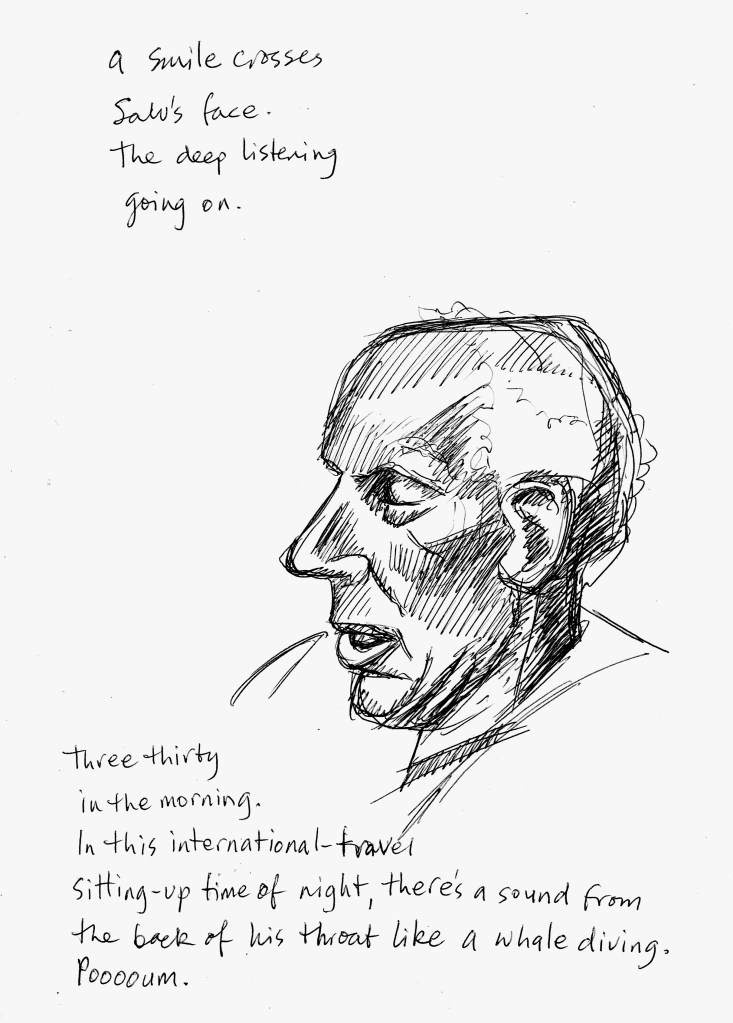 a smile crosses
Salv's face.
The deep listening
going on.
Three thirty
in the morning.
In this international-travel
sitting-up time of night, there's a sound from
the back of his throat like a whale diving.
Pooooum.